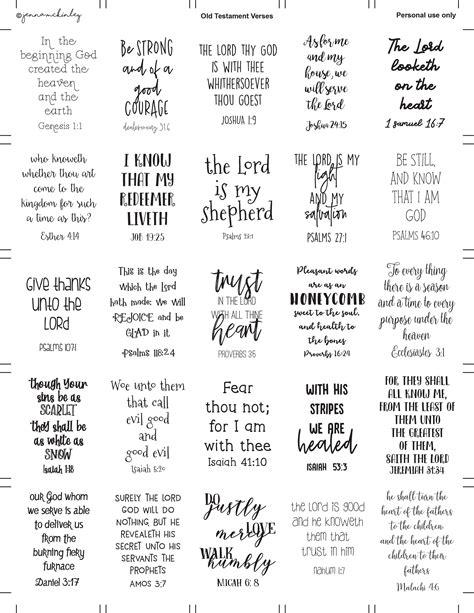 ©jennamckinley
Old Testament Verses
Personal use only
In the
beginning God
created the
heaven
and the
earth
Genesis 1:1
Be STRONG
and of a
good
COURAGE
deuteronomy 31:6
THE LORD THY GOD
IS WITH THEE
WHITHERSOEVER
THOU GOEST
JOSHUA 1:9
As for me
and my
house, we
will serve
the Lord
Joshua 24:15
The Lord
looketh
on the
heart
1 samuel 16:7
who knoweth
whether thou art
come to the
kingdom for such
a time as this?
Esther 4:14
I KNOW
THAT MY
REDEEMER
LIVETH
JOB 19:25
the Lord
is my
shepherd
Psalms 23:1
THE LORD IS MY
light
AND MY
salvation
PSALMS 27:1
BE STILL,
AND KNOW
THAT I AM
GOD
PSALMS 46:10
Give thanks
unto the
Lord
Psalms 107:1
This is the day
which the Lord
hath made; we will
REJOICE and be
GLAD in it.
psalms 118:24
trust
IN THE LORD
WITH ALL THINE
heart
PROVERBS 3:5
Pleasant words
are as an
HONEYCOMB
sweet to the soul,
and health to
the bones
Proverbs 16:24
To every thing
there is a season
and a time to every
purpose under the
heaven
Ecclesiastes 3:1
though your
sins be as
SCARLET
they shall be
as white as
SNOW
Isaiah 1:18
Woe unto them
that call
evil good
and
good evil
Isaiah 5:20
Fear
thou not;
for I am
with thee
Isaiah 41:10
WITH HIS
STRIPES
WE ARE
healed
ISAIAH 53:5
FOR THEY SHALL
ALL KNOW ME,
FROM THE LEAST OF
THEM UNTO
THE GREATEST
OF THEM,
SAITH THE LORD
JEREMIAH 31:34
our God whom
we serve is able
to deliver us
from the
burning fiery
furnace
Daniel 3:17
SURELY THE LORD
GOD WILL DO
NOTHING, BUT HE
REVEALETH HIS
SECRET UNTO HIS
SERVANTS THE
PROPHETS
AMOS 3:7
DO
justly
LOVE
mercy
WALK
humbly
MICAH 6:8
the Lord is good
and he knoweth
them that
trust in him
Nahum 1:7
he shall turn the
heart of the fathers
to the children
and the heart of the
children to their
fathers
Malachi 4:6